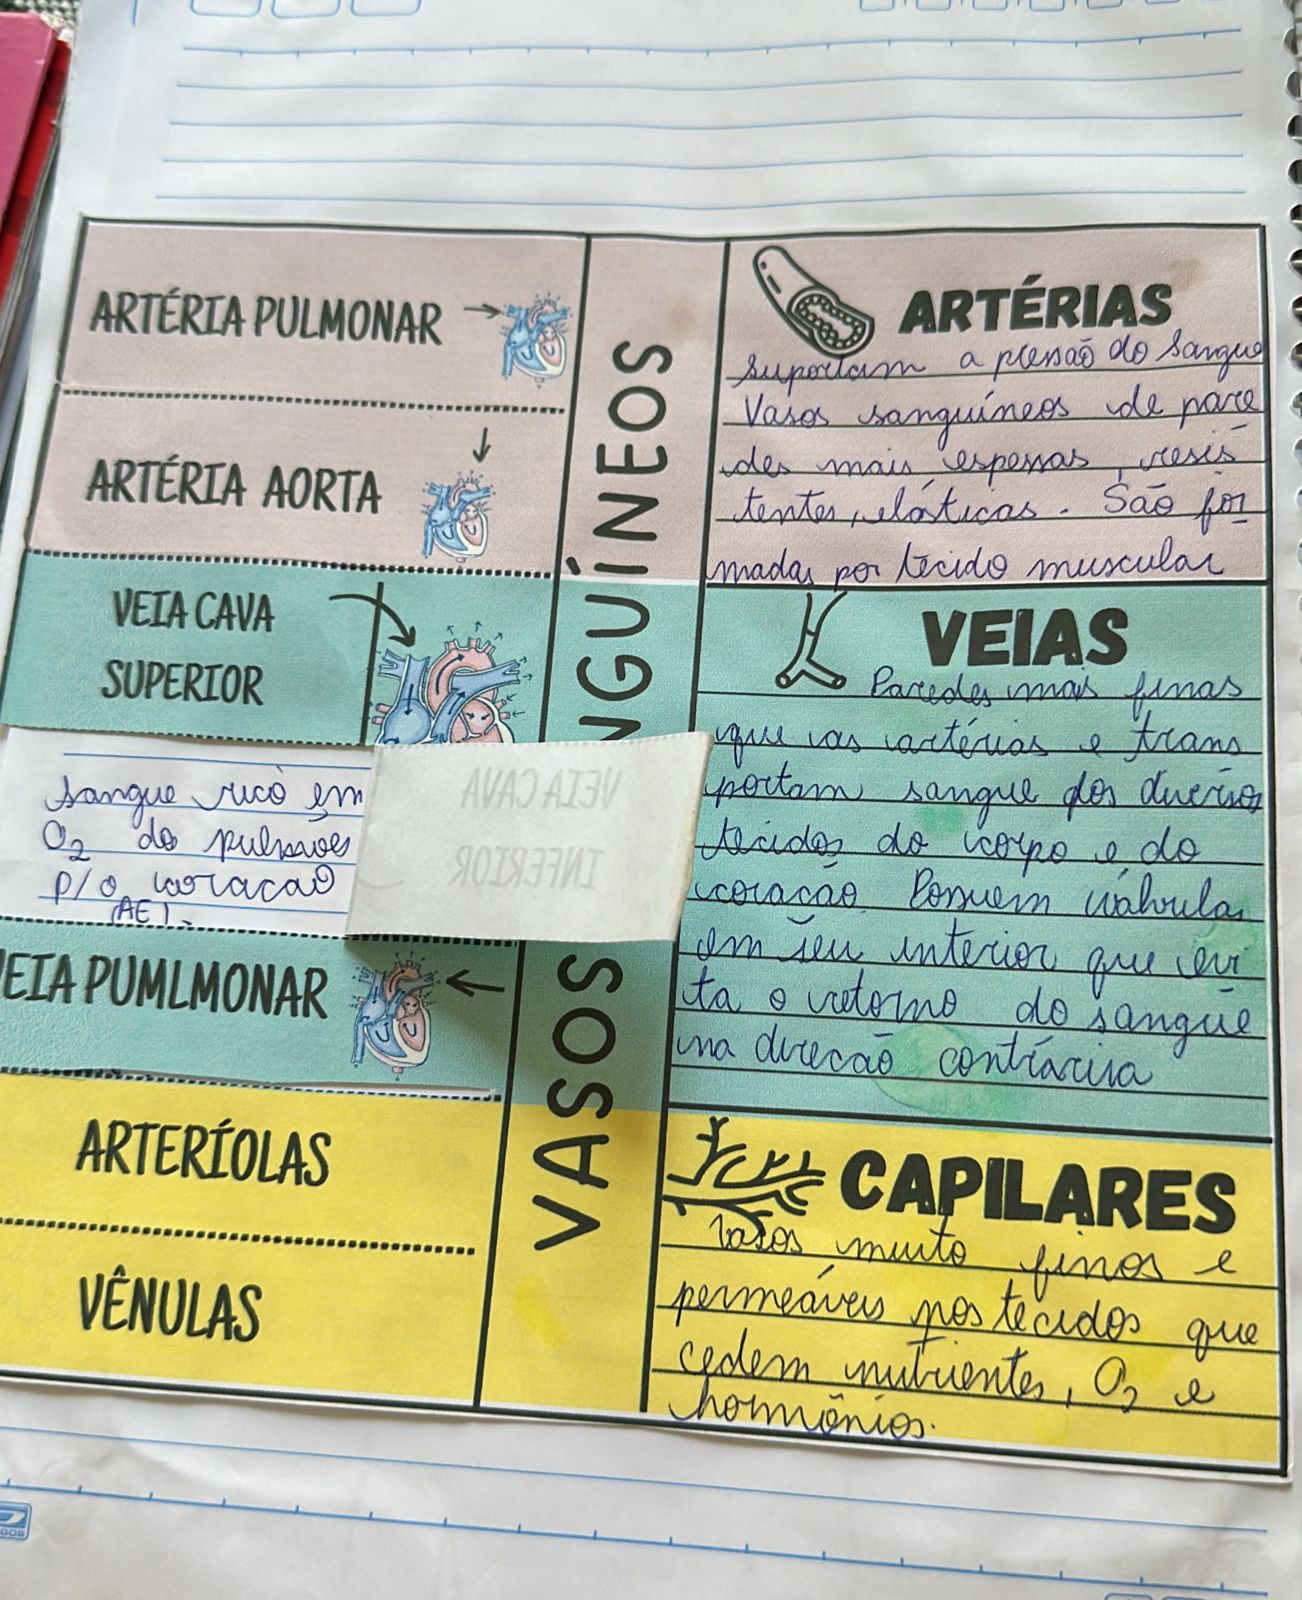 ARTÉRIA PULMONAR
ARTÉRIA AORTA
VEIA CAVA
SUPERIOR
sangue rico em
O2 do pulmões
p/ o coracao
(AE).
VEIA CAVA
INFERIOR
VEIA PUMLMONAR
ARTERÍOLAS
VÊNULAS
VASOS NGUÍNEOS
ARTÉRIAS
suportam a pressão do sangue
Vasos sanguíneos de pare
des mais espessas, resis
tentes, elásticas. São for
madas por tecido muscular
VEIAS
Paredes mais finas
que as artérias e trans
portam sangue dos diversos
tecidos do corpo e do
coração. Possuem válvulas
em seu interior que evi
ta o retorno do sangue
na direcão contráriia
CAPILARES
Vasos muito finos e
permeáveis nos tecidos que
cedem nutrientes, O2 e
hormônios.